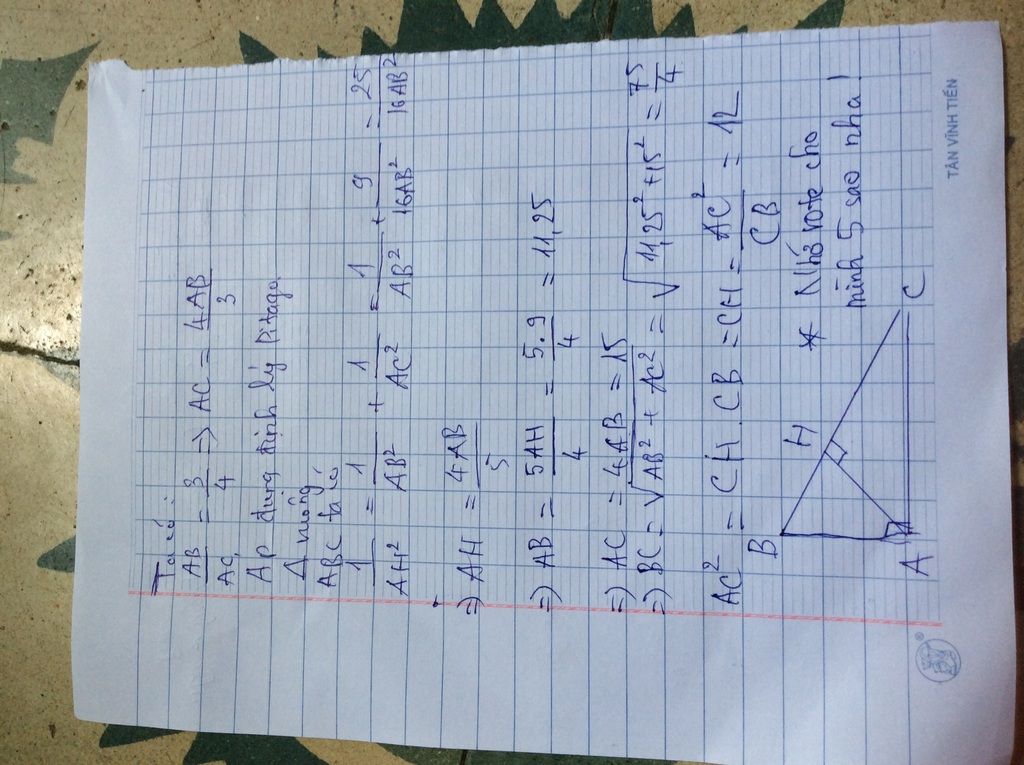 Ta có:
AB/AC = 3/4 => AC = 4AB/3
Ap dụng định lý Pitago
Δ vuông
ABC ta có
1/AH² = 1/AB² + 1/AC² = 1/AB² + 9/16AB² = 25/16AB²
=> AH = 4AB/5
=> AB = 5AH/4 = 5.9/4 = 11,25
=> AC = 4AB/3 = 15
=> BC = √AB² + AC² = √11,25² + 15² = 75/4
AC² = CH. CB = CH = AC²/CB = 12
* Nhớ vote cho
mình 5 sao nha!
B
H
A
C
TÂN VĨNH TIẾN
®